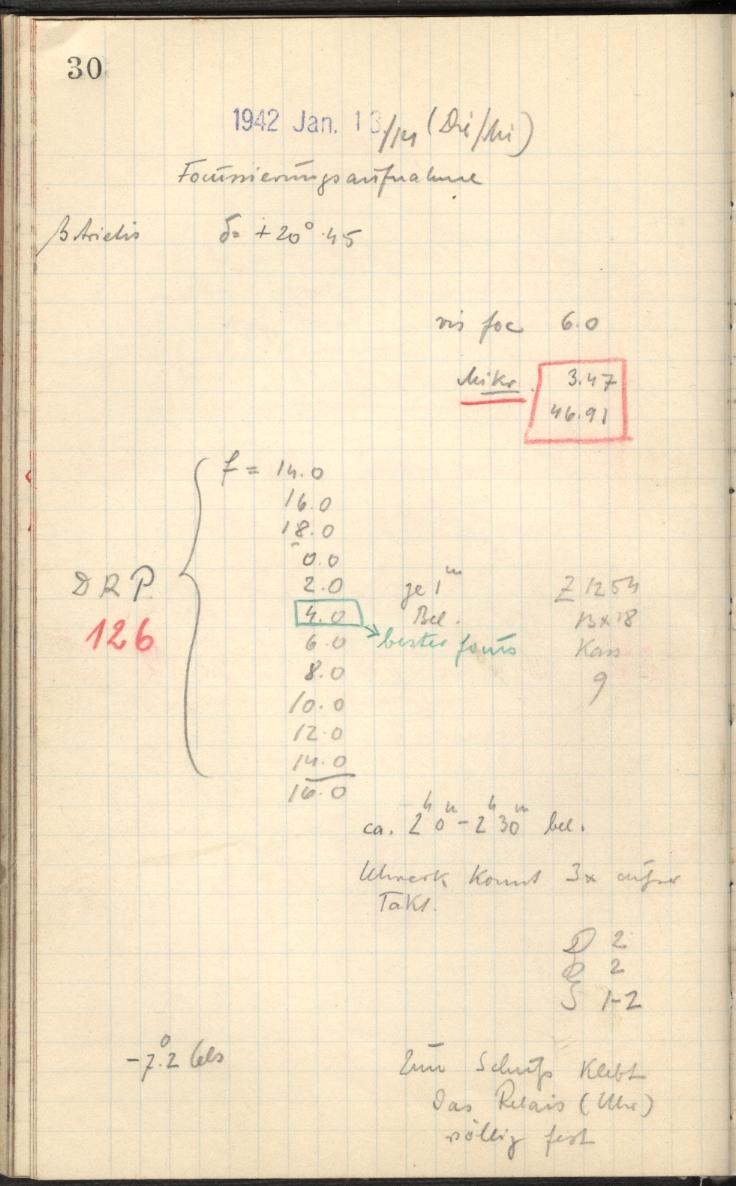 30
1942 Jan. 13/14 (Di/Mi)
Focussierungsaufnahme
β Arietis δ= +20°.45
vis foc 6.0
Mikr. 3.47
46.91
f = 14.0
16.0
18.0
0.0
2.0 je 1ᵐ Z 1254
D R P.
4.0 Bel. 13x18
126
6.0 bester focus Kass
8.0 9
10.0
12.0
14.0
16.0
ca. 2ʰ0ᵐ-2ʰ30ᵐ bel.
Uhrwerk kommt 3x außer
Takt.
D 2
2
S 1-2
-7°.2 Cels
Zum Schluß klebt
das Relais (Uhr)
völlig fest